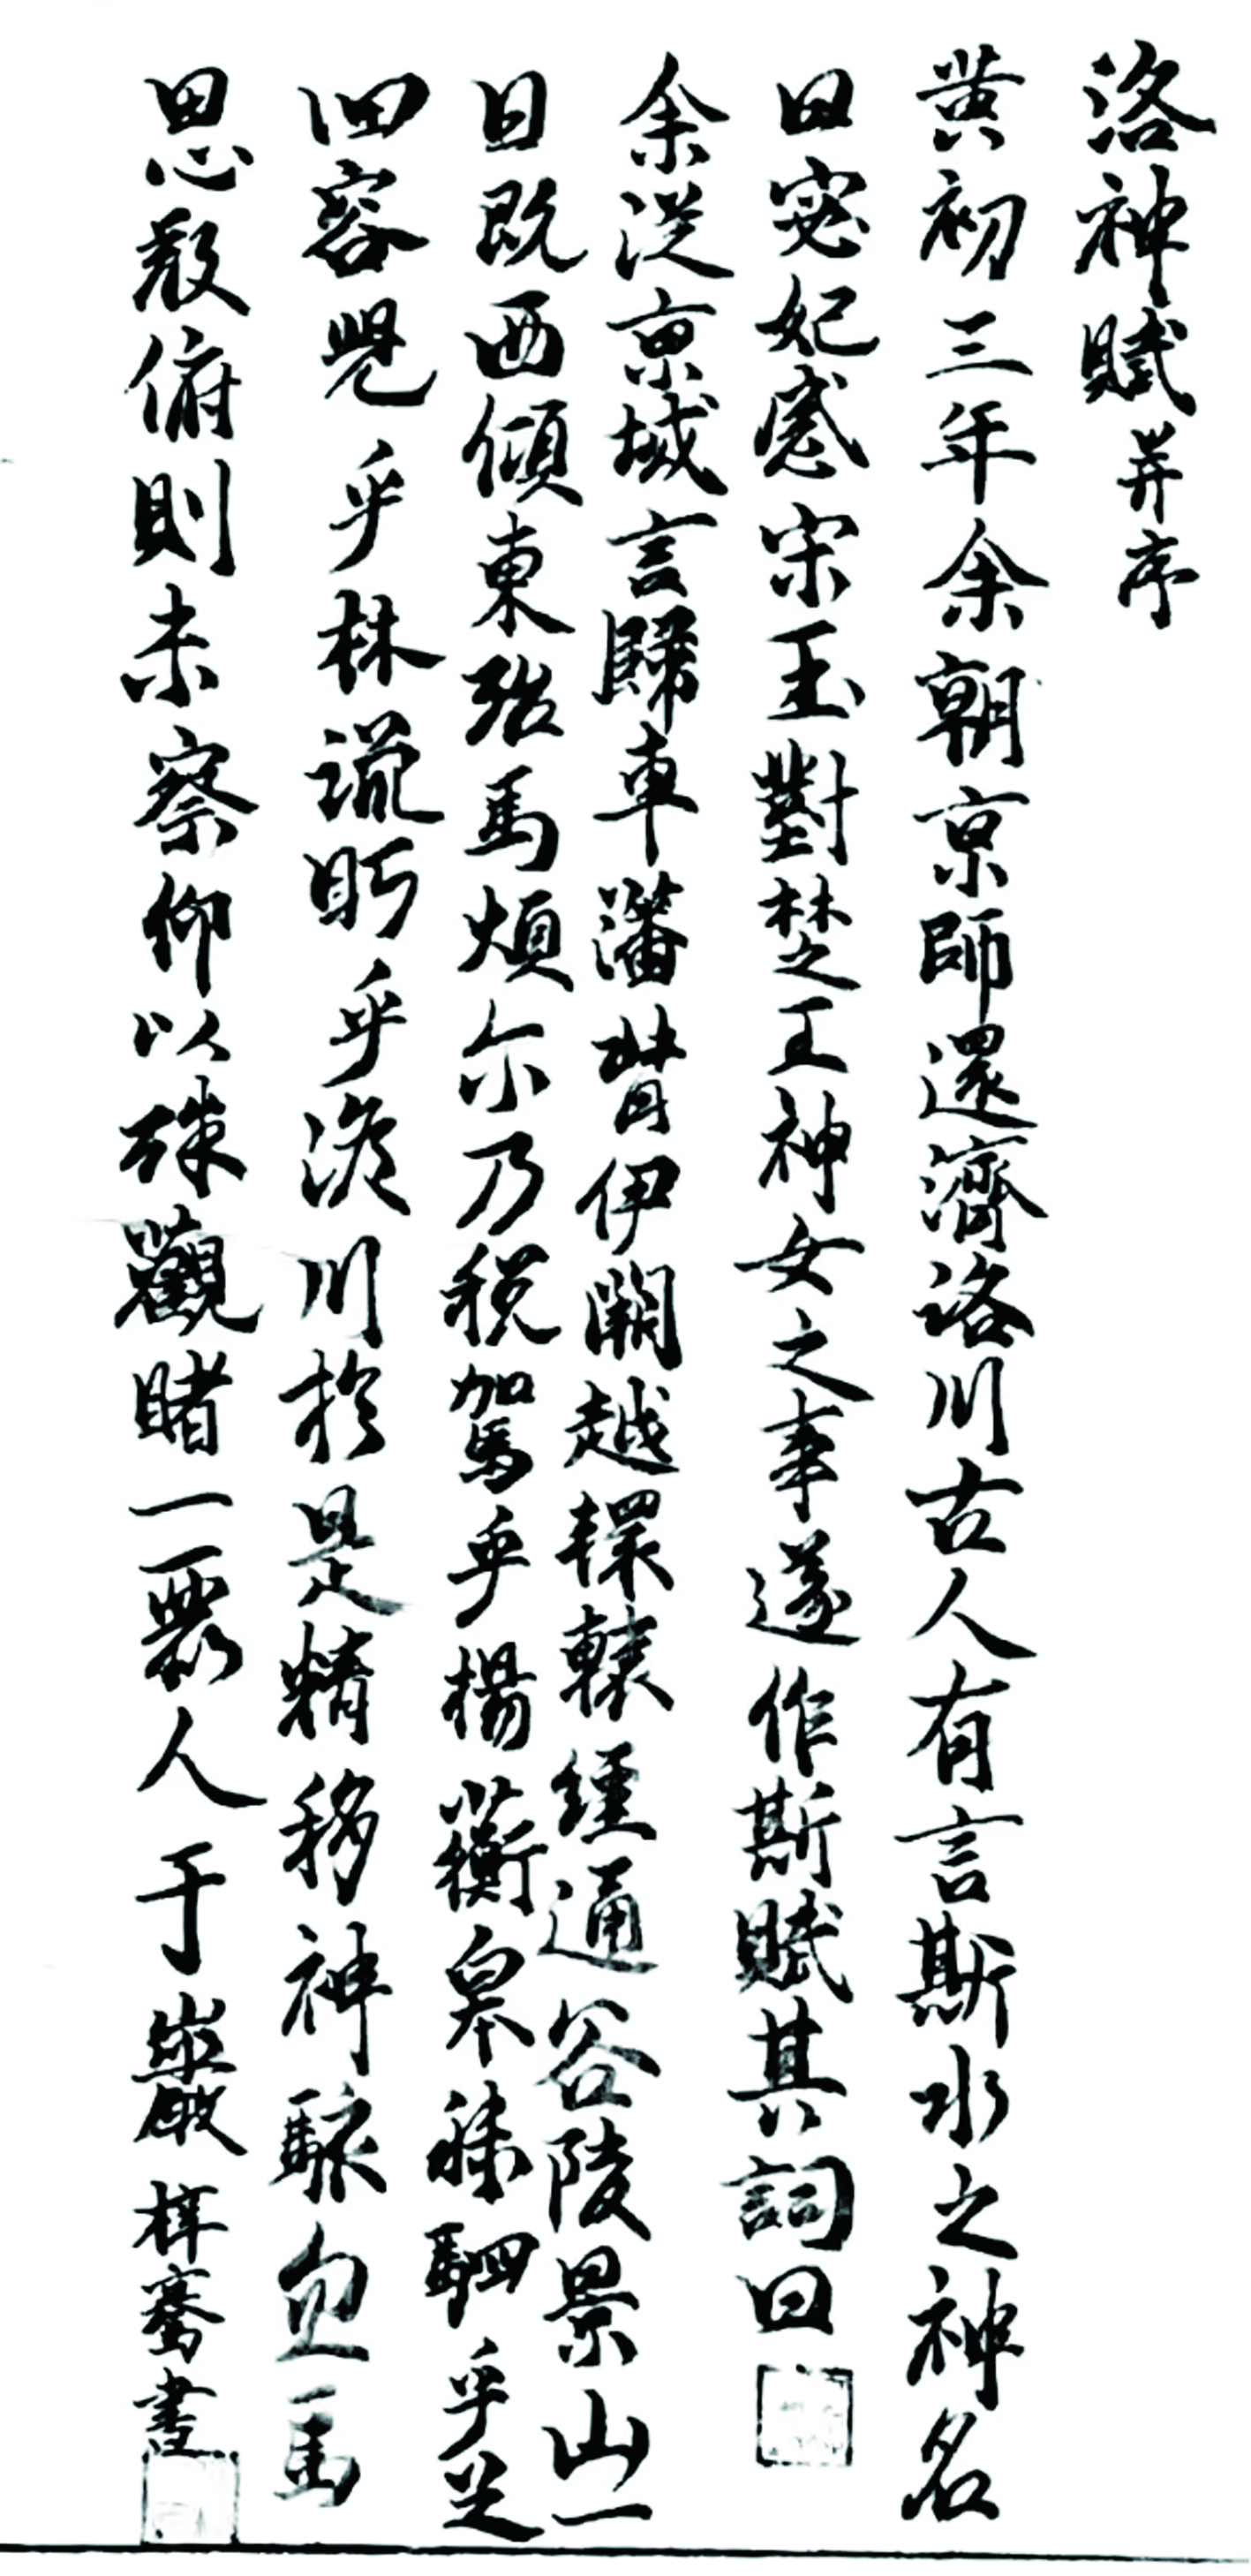 洛神賦并序
黃初三年余朝京師還濟洛川古人有言斯水之神名
曰宓妃感宋玉對楚王神女之事遂作斯賦其詞曰
余從京域言歸車藩背伊闕越轘轅經通谷陵景山一
日既西傾東殆馬煩尓乃稅駕乎楊蘅皋秣駟乎芝
田容與乎林流眄乎洛川於是精移神駭忽焉
思散俯則未察仰以殊觀睹一麗人于巖梓騫書